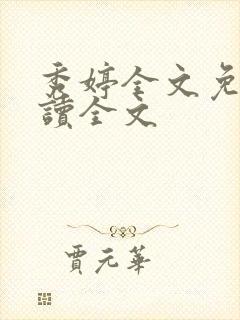 秀婷全文免
讀全文
賈元華